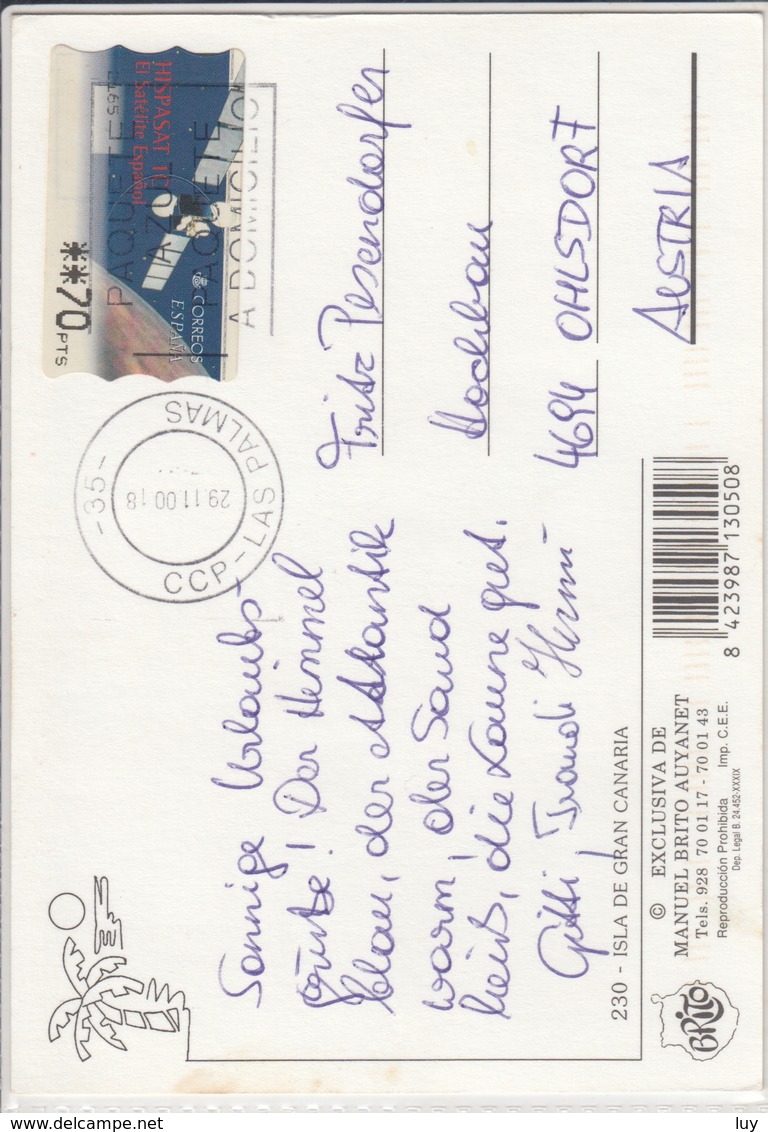 Sonnige Urlaubs-
grüße! Der Himmel
blau, der Atlantik
warm, der Sand
heiß, die Laune gut.
Gitti, Traudi Hermi
Fritz Pesendorfer
Hochbau
4694 OHLSDORF
AUSTRIA
HISPASAT 1C
El Satélite Español
CORREOS
ESPAÑA
**70 PTS
PAQUETE
AZUL
PAQUETE
A DOMICILIO
-35-
CCP-LAS PALMAS
29.11.00 18
230 - ISLA DE GRAN CANARIA
© EXCLUSIVA DE
MANUEL BRITO AUYANET
Tels. 928 70 01 17 - 70 01 43
Reproducción Prohibida Imp. C.E.E.
Dep. Legal B. 24.452-XXXIX
BRITO
8 423987 130508
www.delcampe.net
luy